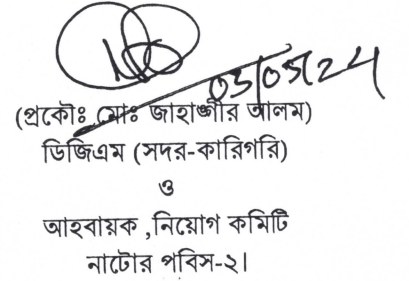 03/05/24
(প্রকৌঃ মোঃ জাহাঙ্গীর আলম)
ডিজিএম (সদর-কারিগরি)
ও
আহবায়ক ,নিয়োগ কমিটি
নাটোর পবিস-২।